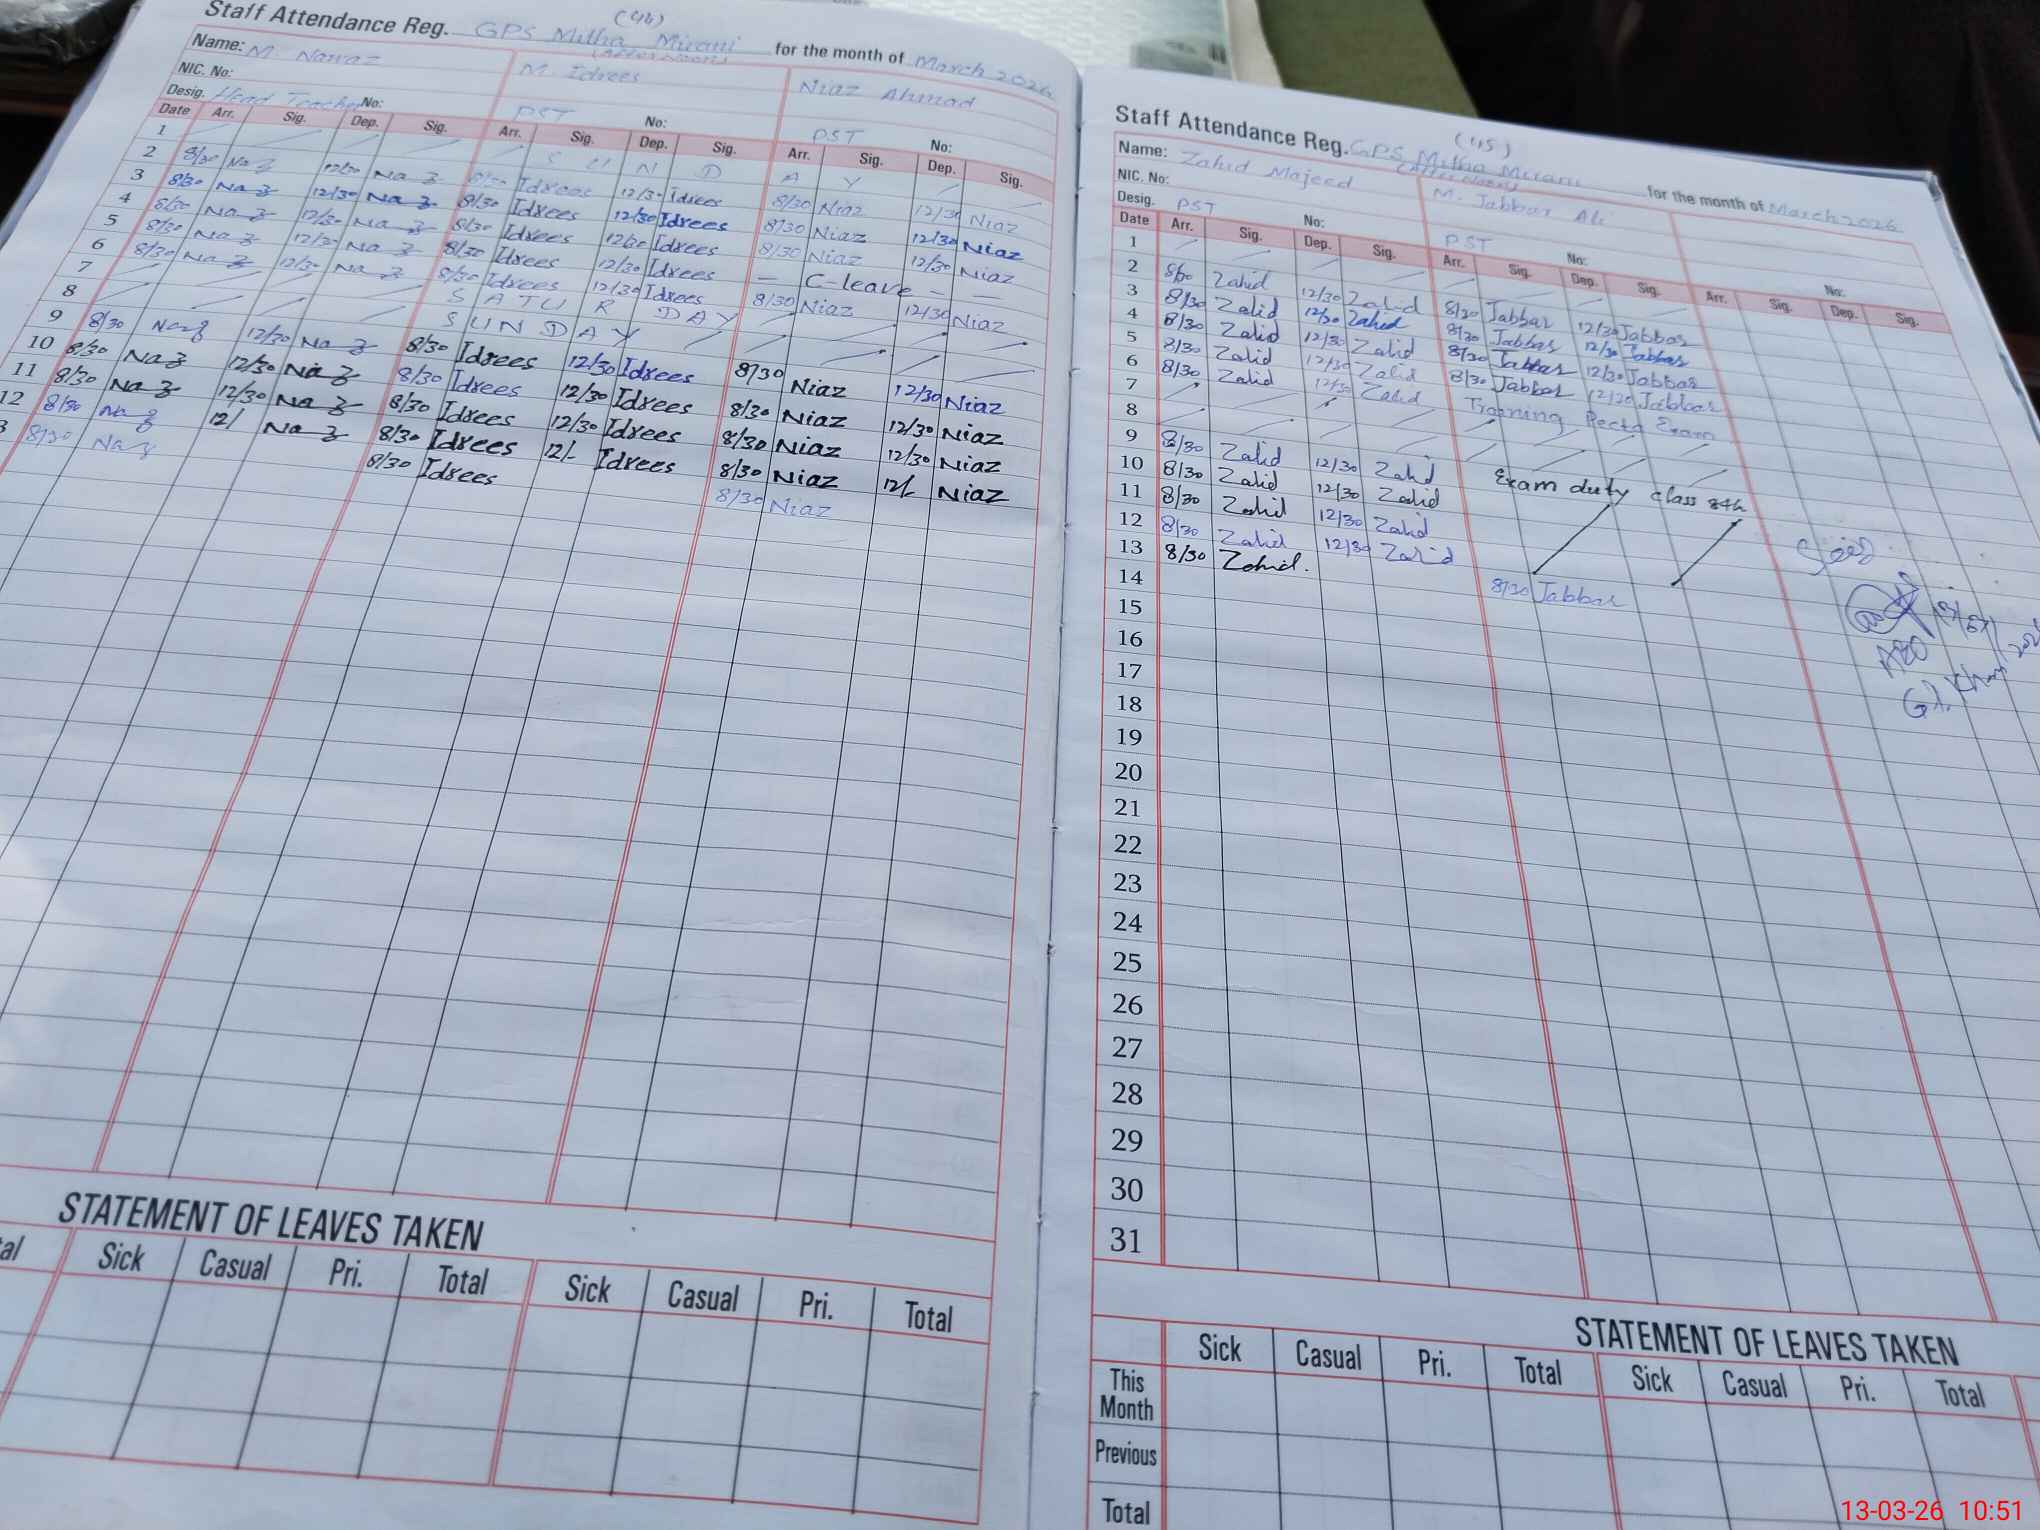 (44)
Staff Attendance Reg. GPS Mitha Mirani for the month of March 2026
(Afternoon)
Name: M. Nawaz M. Idrees Niaz Ahmad
NIC. No:
Desig. Head Teacher No: PST No: PST No:
Date Arr. Sig. Dep. Sig. Arr. Sig. Dep. Sig. Arr. Sig. Dep. Sig.
1 S U N D A Y
2 8/30 Naz 12/30 Naz 8/30 Idrees 12/30 Idrees 8/30 Niaz 12/30 Niaz
3 8/30 Naz 12/30 Naz 8/30 Idrees 12/30 Idrees 8/30 Niaz 12/30 Niaz
4 8/30 Naz 12/30 Naz 8/30 Idrees 12/30 Idrees 8/30 Niaz 12/30 Niaz
5 8/30 Naz 12/30 Naz 8/30 Idrees 12/30 Idrees — C-leave — —
6 8/30 Naz 12/30 Naz 8/30 Idrees 12/30 Idrees 8/30 Niaz 12/30 Niaz
7 S A T U R D A Y
8 S U N D A Y
9 8/30 Naz 12/30 Naz 8/30 Idrees 12/30 Idrees 8/30 Niaz 12/30 Niaz
10 8/30 Naz 12/30 Naz 8/30 Idrees 12/30 Idrees 8/30 Niaz 12/30 Niaz
11 8/30 Naz 12/30 Naz 8/30 Idrees 12/30 Idrees 8/30 Niaz 12/30 Niaz
12 8/30 Naz 12/ Naz 8/30 Idrees 12/- Idrees 8/30 Niaz 12/- Niaz
3 8/30 Naz 8/30 Idrees 8/30 Niaz
STATEMENT OF LEAVES TAKEN
tal Sick Casual Pri. Total Sick Casual Pri. Total
(45)
Staff Attendance Reg. GPS Mitha Mirani for the month of March 2026
(Afternoon)
Name: Zahid Majeed M. Jabbar Ali
NIC. No:
Desig. PST No: PST No: No:
Date Arr. Sig. Dep. Sig. Arr. Sig. Dep. Sig. Arr. Sig. Dep. Sig.
1
2 8/30 Zahid 12/30 Zahid 8/30 Jabbar 12/30 Jabbar
3 8/30 Zahid 12/30 Zahid 8/30 Jabbar 12/30 Jabbar
4 8/30 Zahid 12/30 Zahid 8/30 Jabbar 12/30 Jabbar
5 8/30 Zahid 12/30 Zahid 8/30 Jabbar 12/30 Jabbar
6 8/30 Zahid 12/30 Zahid Training Pecta Exam
7
8
9 8/30 Zahid 12/30 Zahid Exam duty class 8th
10 8/30 Zahid 12/30 Zahid
11 8/30 Zahid 12/30 Zahid
12 8/30 Zahid 12/30 Zahid
13 8/30 Zahid. 8/30 Jabbar
14
15
16
17
18
19
20
21
22
23
24
25
26
27
28
29
30
31
STATEMENT OF LEAVES TAKEN
Sick Casual Pri. Total Sick Casual Pri. Total
This Month
Previous
Total
13-03-26 10:51